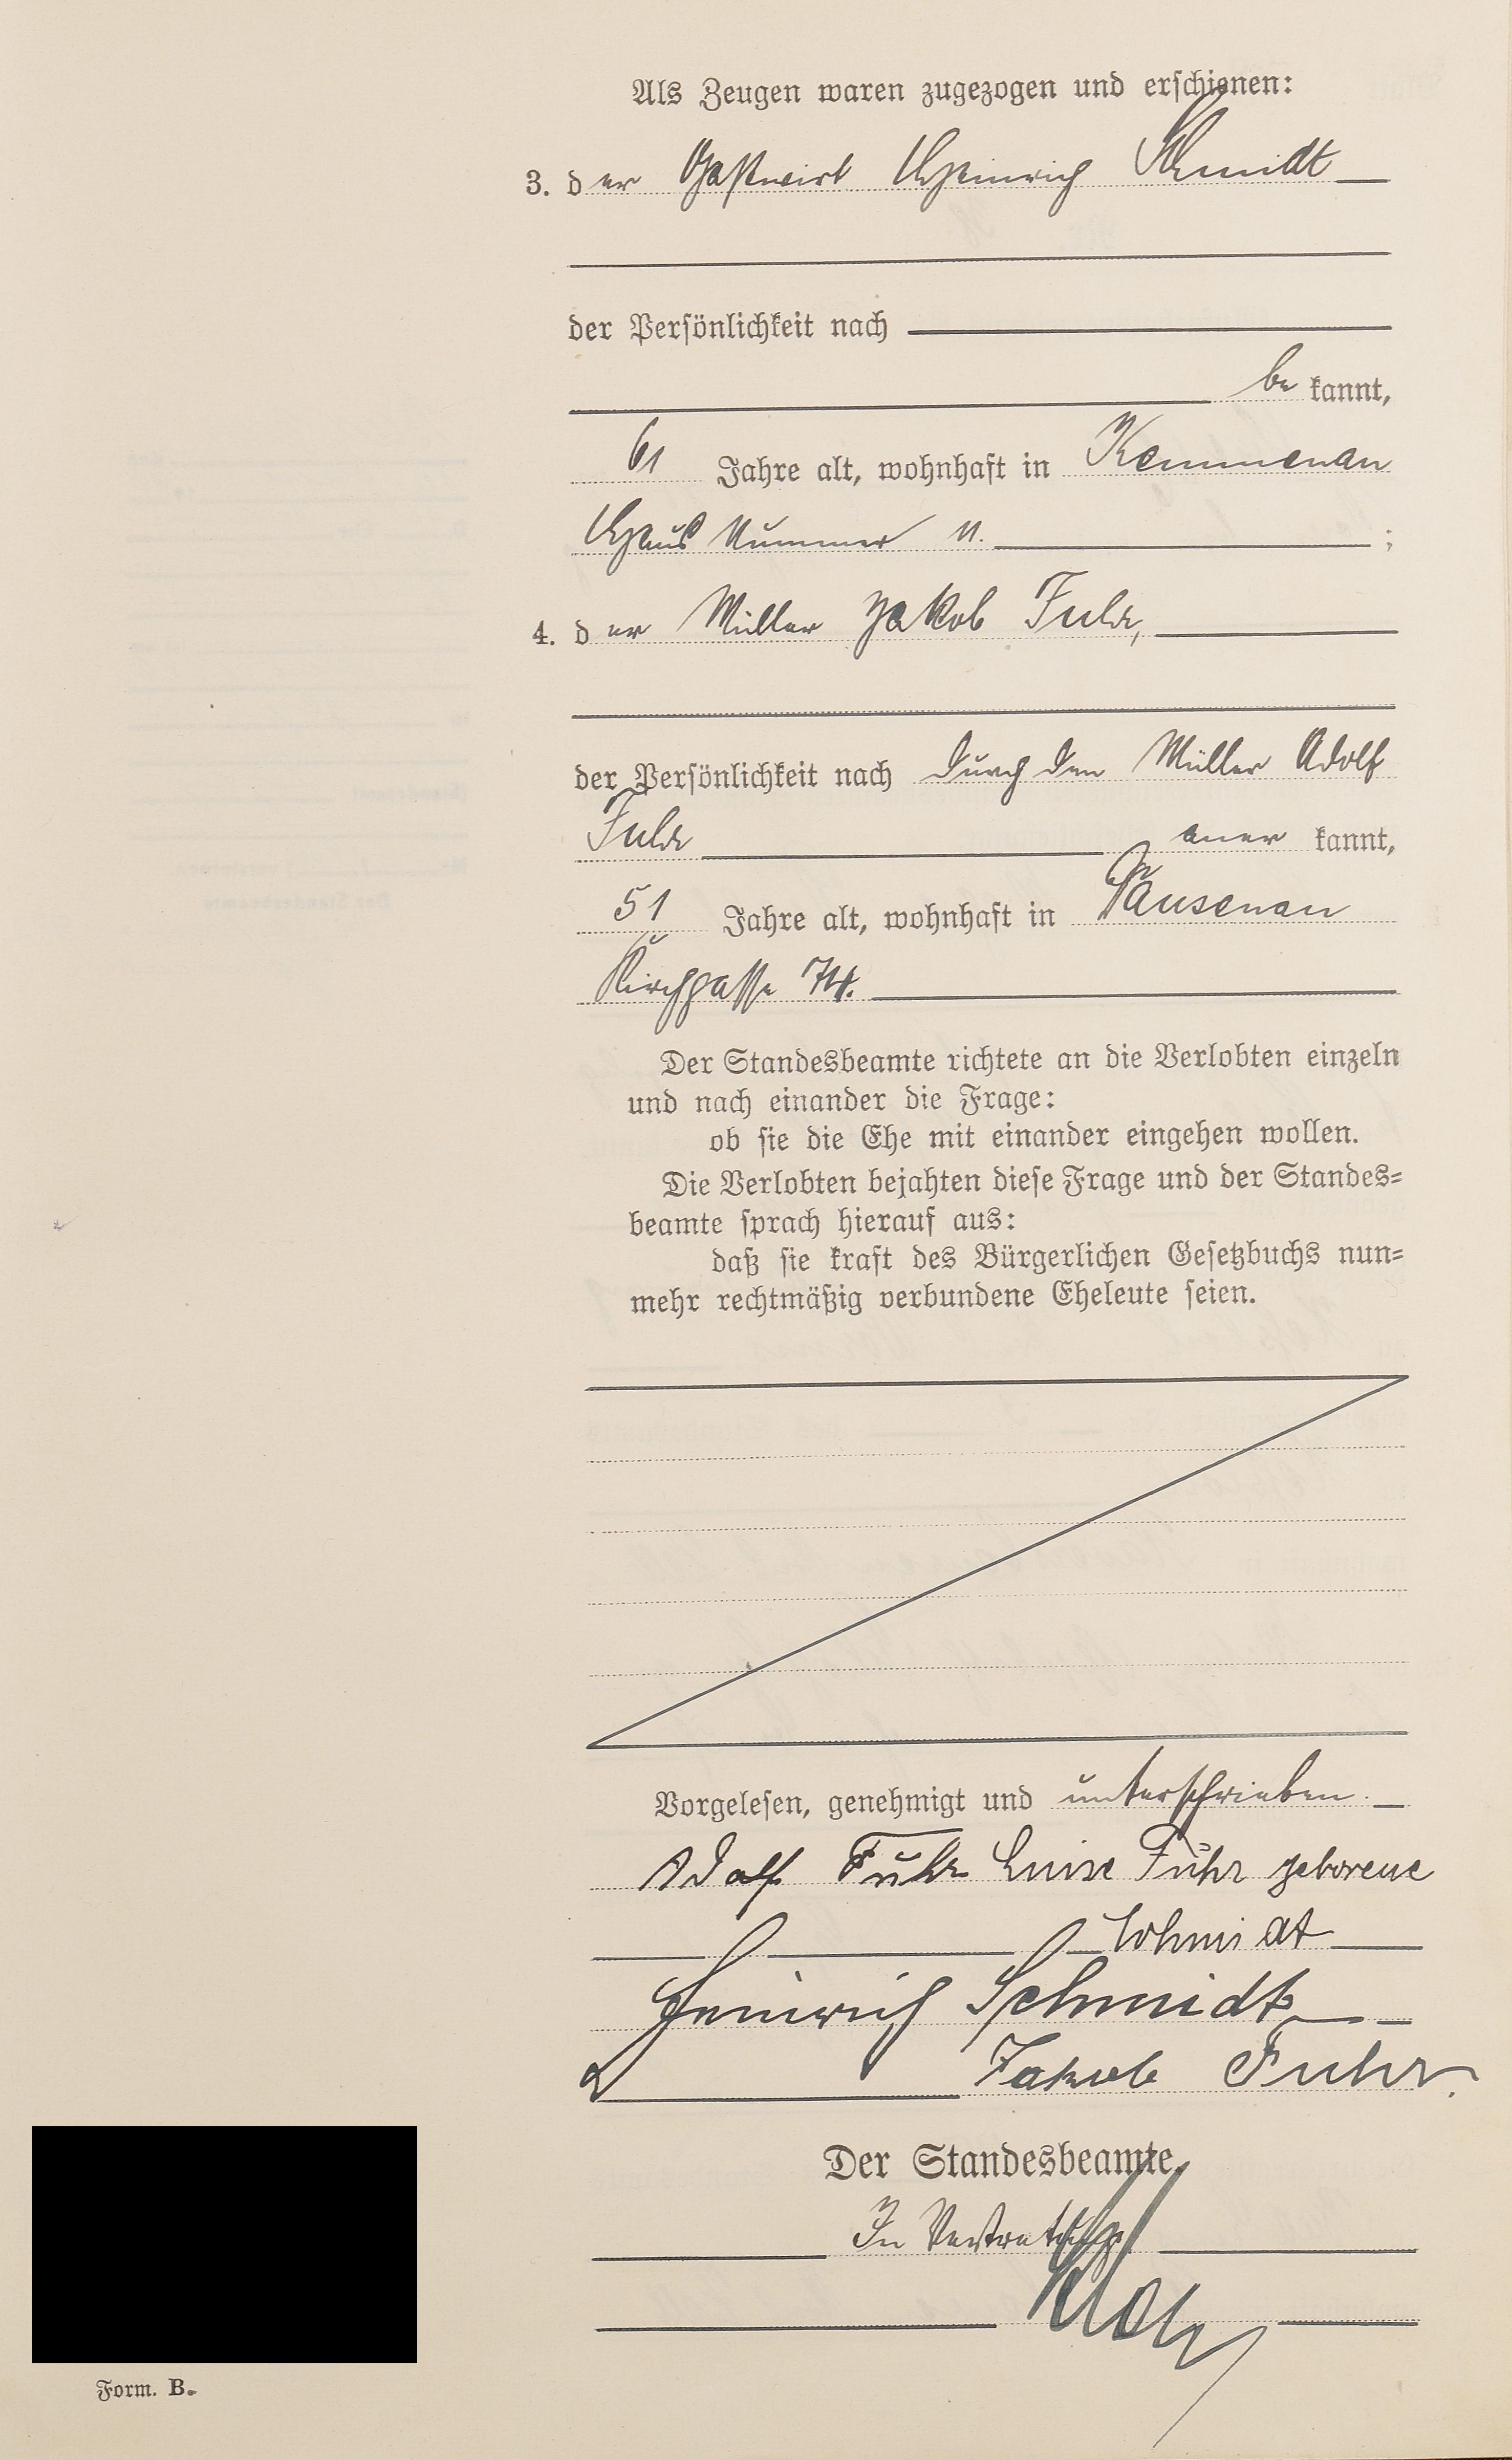 Als Zeugen waren zugezogen und erschienen:
3. der Gastwirt Heinrich Schmidt
der Persönlichkeit nach
be kannt,
61 Jahre alt, wohnhaft in Kemmenau
Haus Nummer 11. ;
4. der Müller Jakob Fuhr,
der Persönlichkeit nach durch den Müller Adolf
Fuhr aner kannt,
51 Jahre alt, wohnhaft in Dausenau
Kirchgasse 74.
Der Standesbeamte richtete an die Verlobten einzeln
und nach einander die Frage:
ob sie die Ehe mit einander eingehen wollen.
Die Verlobten bejahten diese Frage und der Standes=
beamte sprach hierauf aus:
daß sie kraft des Bürgerlichen Gesetzbuchs nun=
mehr rechtmäßig verbundene Eheleute seien.
Vorgelesen, genehmigt und unterschrieben.
Adolf Fuhr Luise Fuhr geborene
Schmidt
Heinrich Schmidt
Jakob Fuhr.
Der Standesbeamte.
In Vertretung
Form. B.